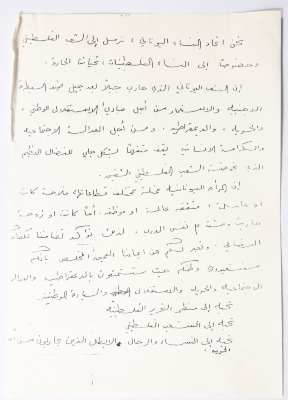 نحن اتحاد النساء اليوناني، نرسل إلى الشعب الفلسطيني
وخصوصاً إلى النساء الفلسطينيات، تحياتنا الحارة.
إن الشعب اليوناني الذي حارب جيلاً بعد جيل ضد السيطرة
الاجنبية والاستعمار من أجل مبادئ الاستقلال الوطني،
والحرية، والديمقراطية، ومن أجل العدالة الاجتماعية
والكرامة الانسانية يقف متفهماً بشكل جلي للنضال العظيم
الذي يخوضه الشعب الفلسطيني الشقيق.
إن المرأة اليونانية ممثلة بمختلف قطاعاتها، فلاحة كانت
او عاملة، مثقفة عاملة او موظفة، أماً كانت او زوجة
لذلك نؤكد تضامننا
النضالي. ونعبر لكم عن ايماننا العميق المخلص بأنكم
وطنكم حيث ستتمتعون بالديمقراطية والعدالة
الاجتماعية والحرية والاستقلال الوطني والسيادة الوطنية.
تحية إلى منظمة التحرير الفلسطينية
تحية إلى الشعب الفلسطيني
تحية إلى النساء والرجال والابطال الذين يحاربون من أجل
الحرية